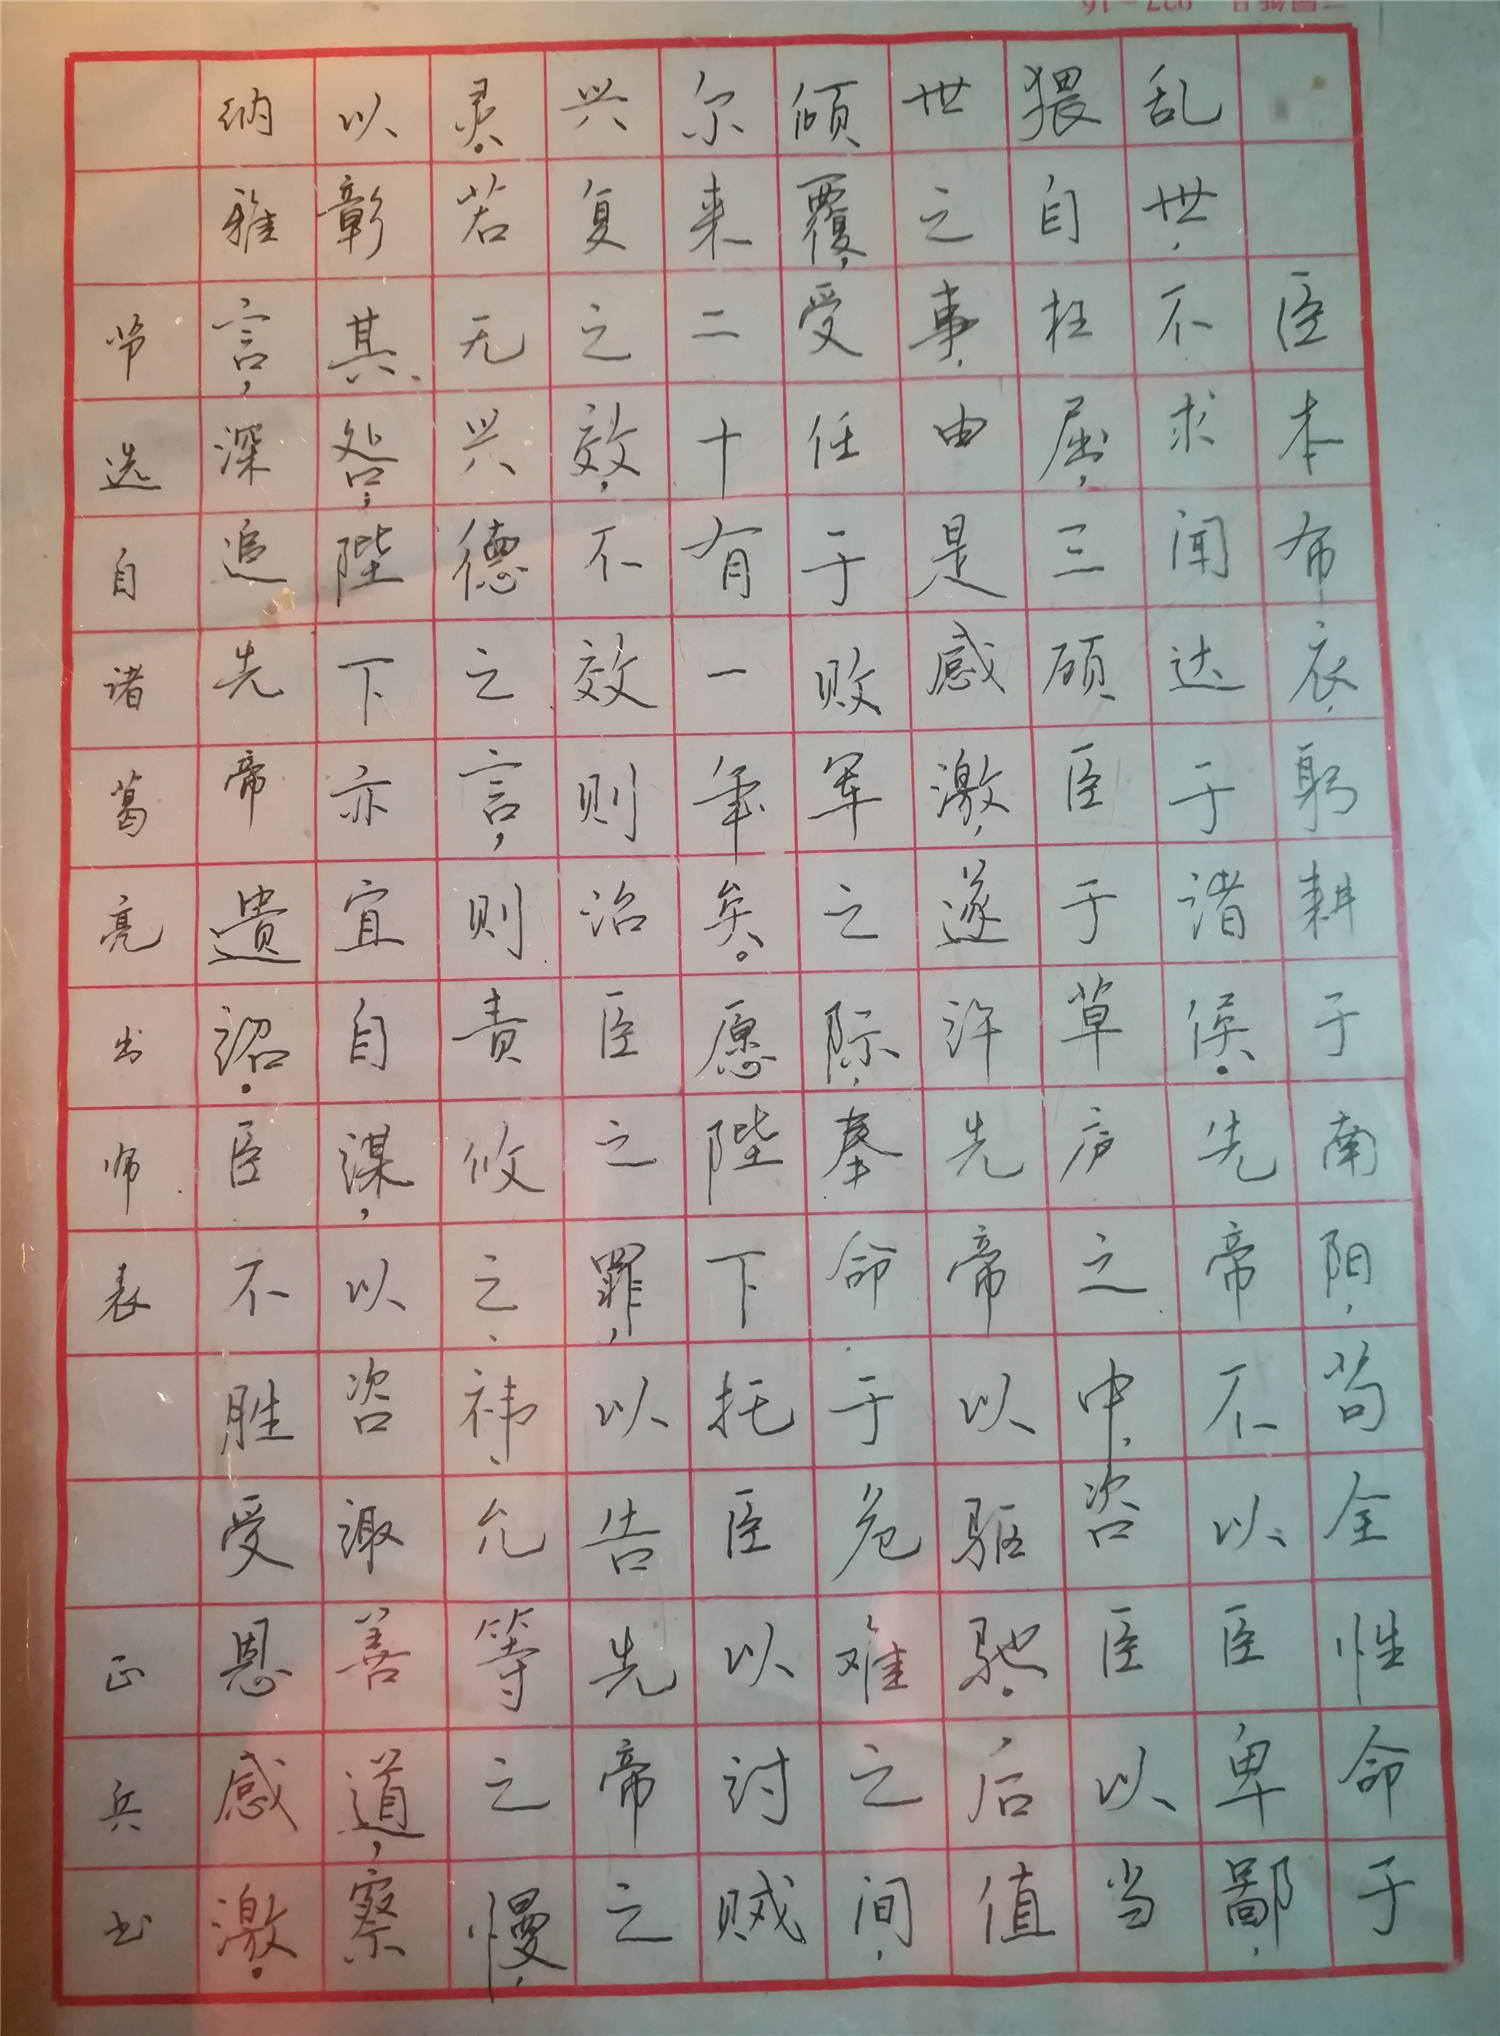 臣本布衣,躬耕于南阳,苟全性命于
乱世,不求闻达于诸侯。先帝不以臣卑鄙,
猥自枉屈,三顾臣于草庐之中,咨臣以当
世之事,由是感激,遂许先帝以驱驰。后值
倾覆,受任于败军之际,奉命于危难之间,
尔来二十有一年矣。愿陛下托臣以讨贼
兴复之效,不效则治臣之罪,以告先帝之
灵。若无兴德之言,则责攸之、祎、允等之慢,
以彰其咎,陛下亦宜自谋,以咨诹善道,察
纳雅言,深追先帝遗诏。臣不胜受恩感激。
节选自诸葛亮出师表 正兵书